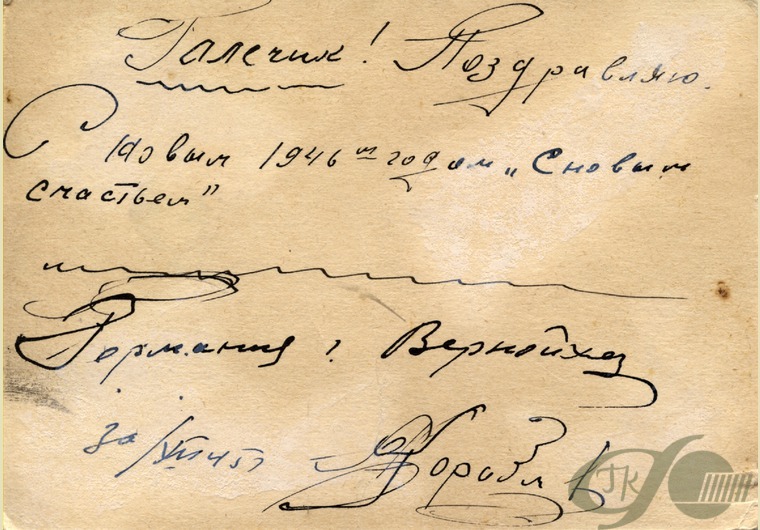 Галечик! Поздравляю.
С Новым 1946 м годом „С новым
счастьем"
Германия г. Вернойхен
30/XII 45 г
ГК